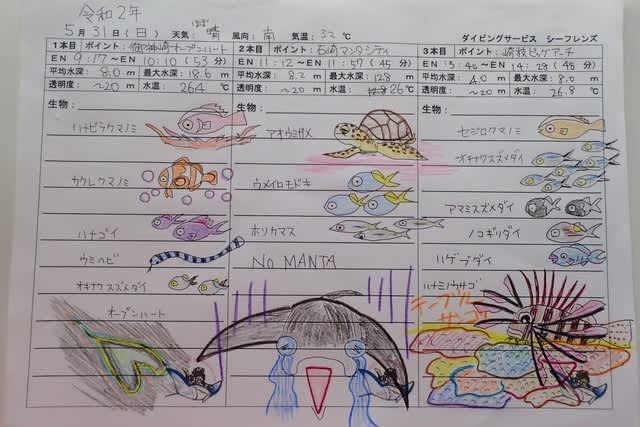 令和2年
5月31日(日) 天気: 晴 風向: 南 気温: 32 ℃ ダイビングサービス シーフレンズ
1本目 ポイント: 御神崎オープンハート
EN 9:17 ~EN 10:10 (53分)
平均水深: 8.0 m 最大水深: 18.6 m
透明度: ~20 m 水温: 26.4 ℃
生物:
ハナビラクマノミ
カクレクマノミ
ハナゴイ
ウミヘビ
オキナワスズメダイ
オープンハート
2本目 ポイント: 石崎マンタシティ
EN 11:12 ~EN 11:57 (45分)
平均水深: 8.2 m 最大水深: 12.8 m
透明度: ~20 m 水温: 26 ℃
生物:
アオウミガメ
ウメイロモドキ
ホソカマス
NO MANTA
3本目 ポイント: 崎枝ビッグアーチ
平均水深: 4.0 m 最大水深: 8.0 m
透明度: ~20 m 水温: 26.8 ℃
生物:
セジロクマノミ
オキナワスズメダイ
アマミスズメダイ
ノコギリダイ
ハゲブダイ
ハナミノカサゴ
テーブル
サンゴ